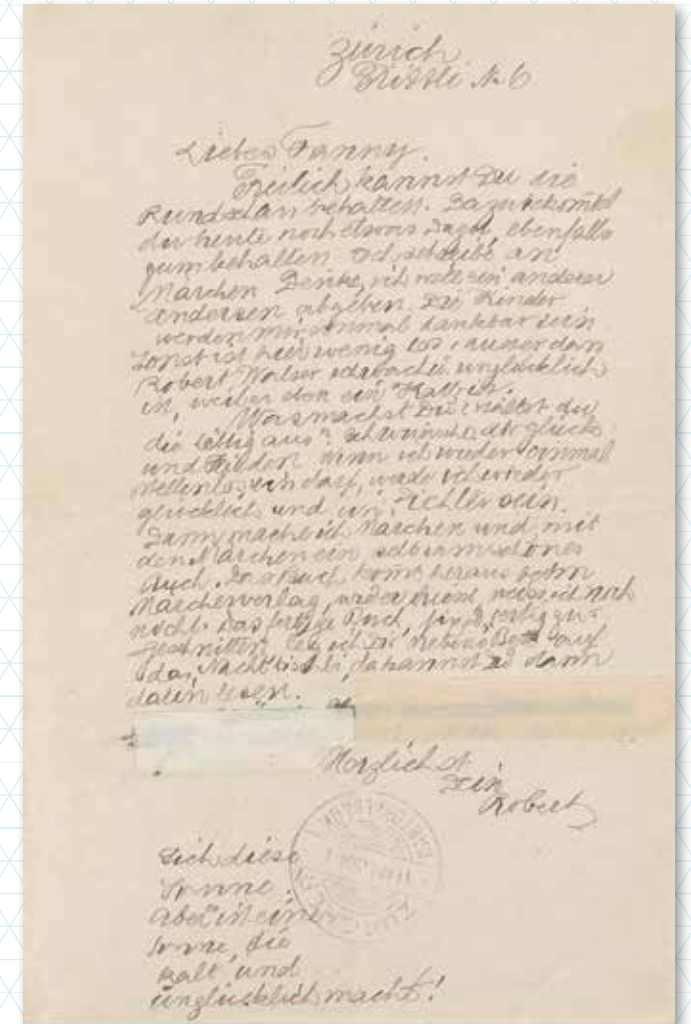 Zürich
Trittli No 6
Liebes Fanny.
Freilich kannst Du die
Rundschau behalten. Dazu bekommst
du heute noch etwas dazu, ebenfalls
zum behalten. Ich schreibe an
Märchen. Denke, ich will ein anderer
Andersen abgeben. Die Kinder
werden mir einmal dankbar sein.
Sonst ist hier wenig los, ausser dass
Robert Walser schwach unglücklich
ist, weil er den ein
Was machst Du? hältst du
die aus? Ich wünsche dir glück
und Frieden. wenn ich wieder einmal
stellenlos sein darf, werde ich wieder
glücklich und ein Dichter sein.
Dann mache ich Märchen und mit
den Märchen ein schönes
Buch. Das Buch kommt heraus beim
Märchenverlag, weiss ich noch
nicht. Das fertige Buch, fix fertig zu-
geschnitten, leg ich Dir neben's Bett auf
das Nachttischli, da kannst du dann
darin lesen.
Herzlichst
Dein
Robert
Sieh diese
Sonne.
Aber ist eine
Sonne, die
kalt und
unglücklich macht!